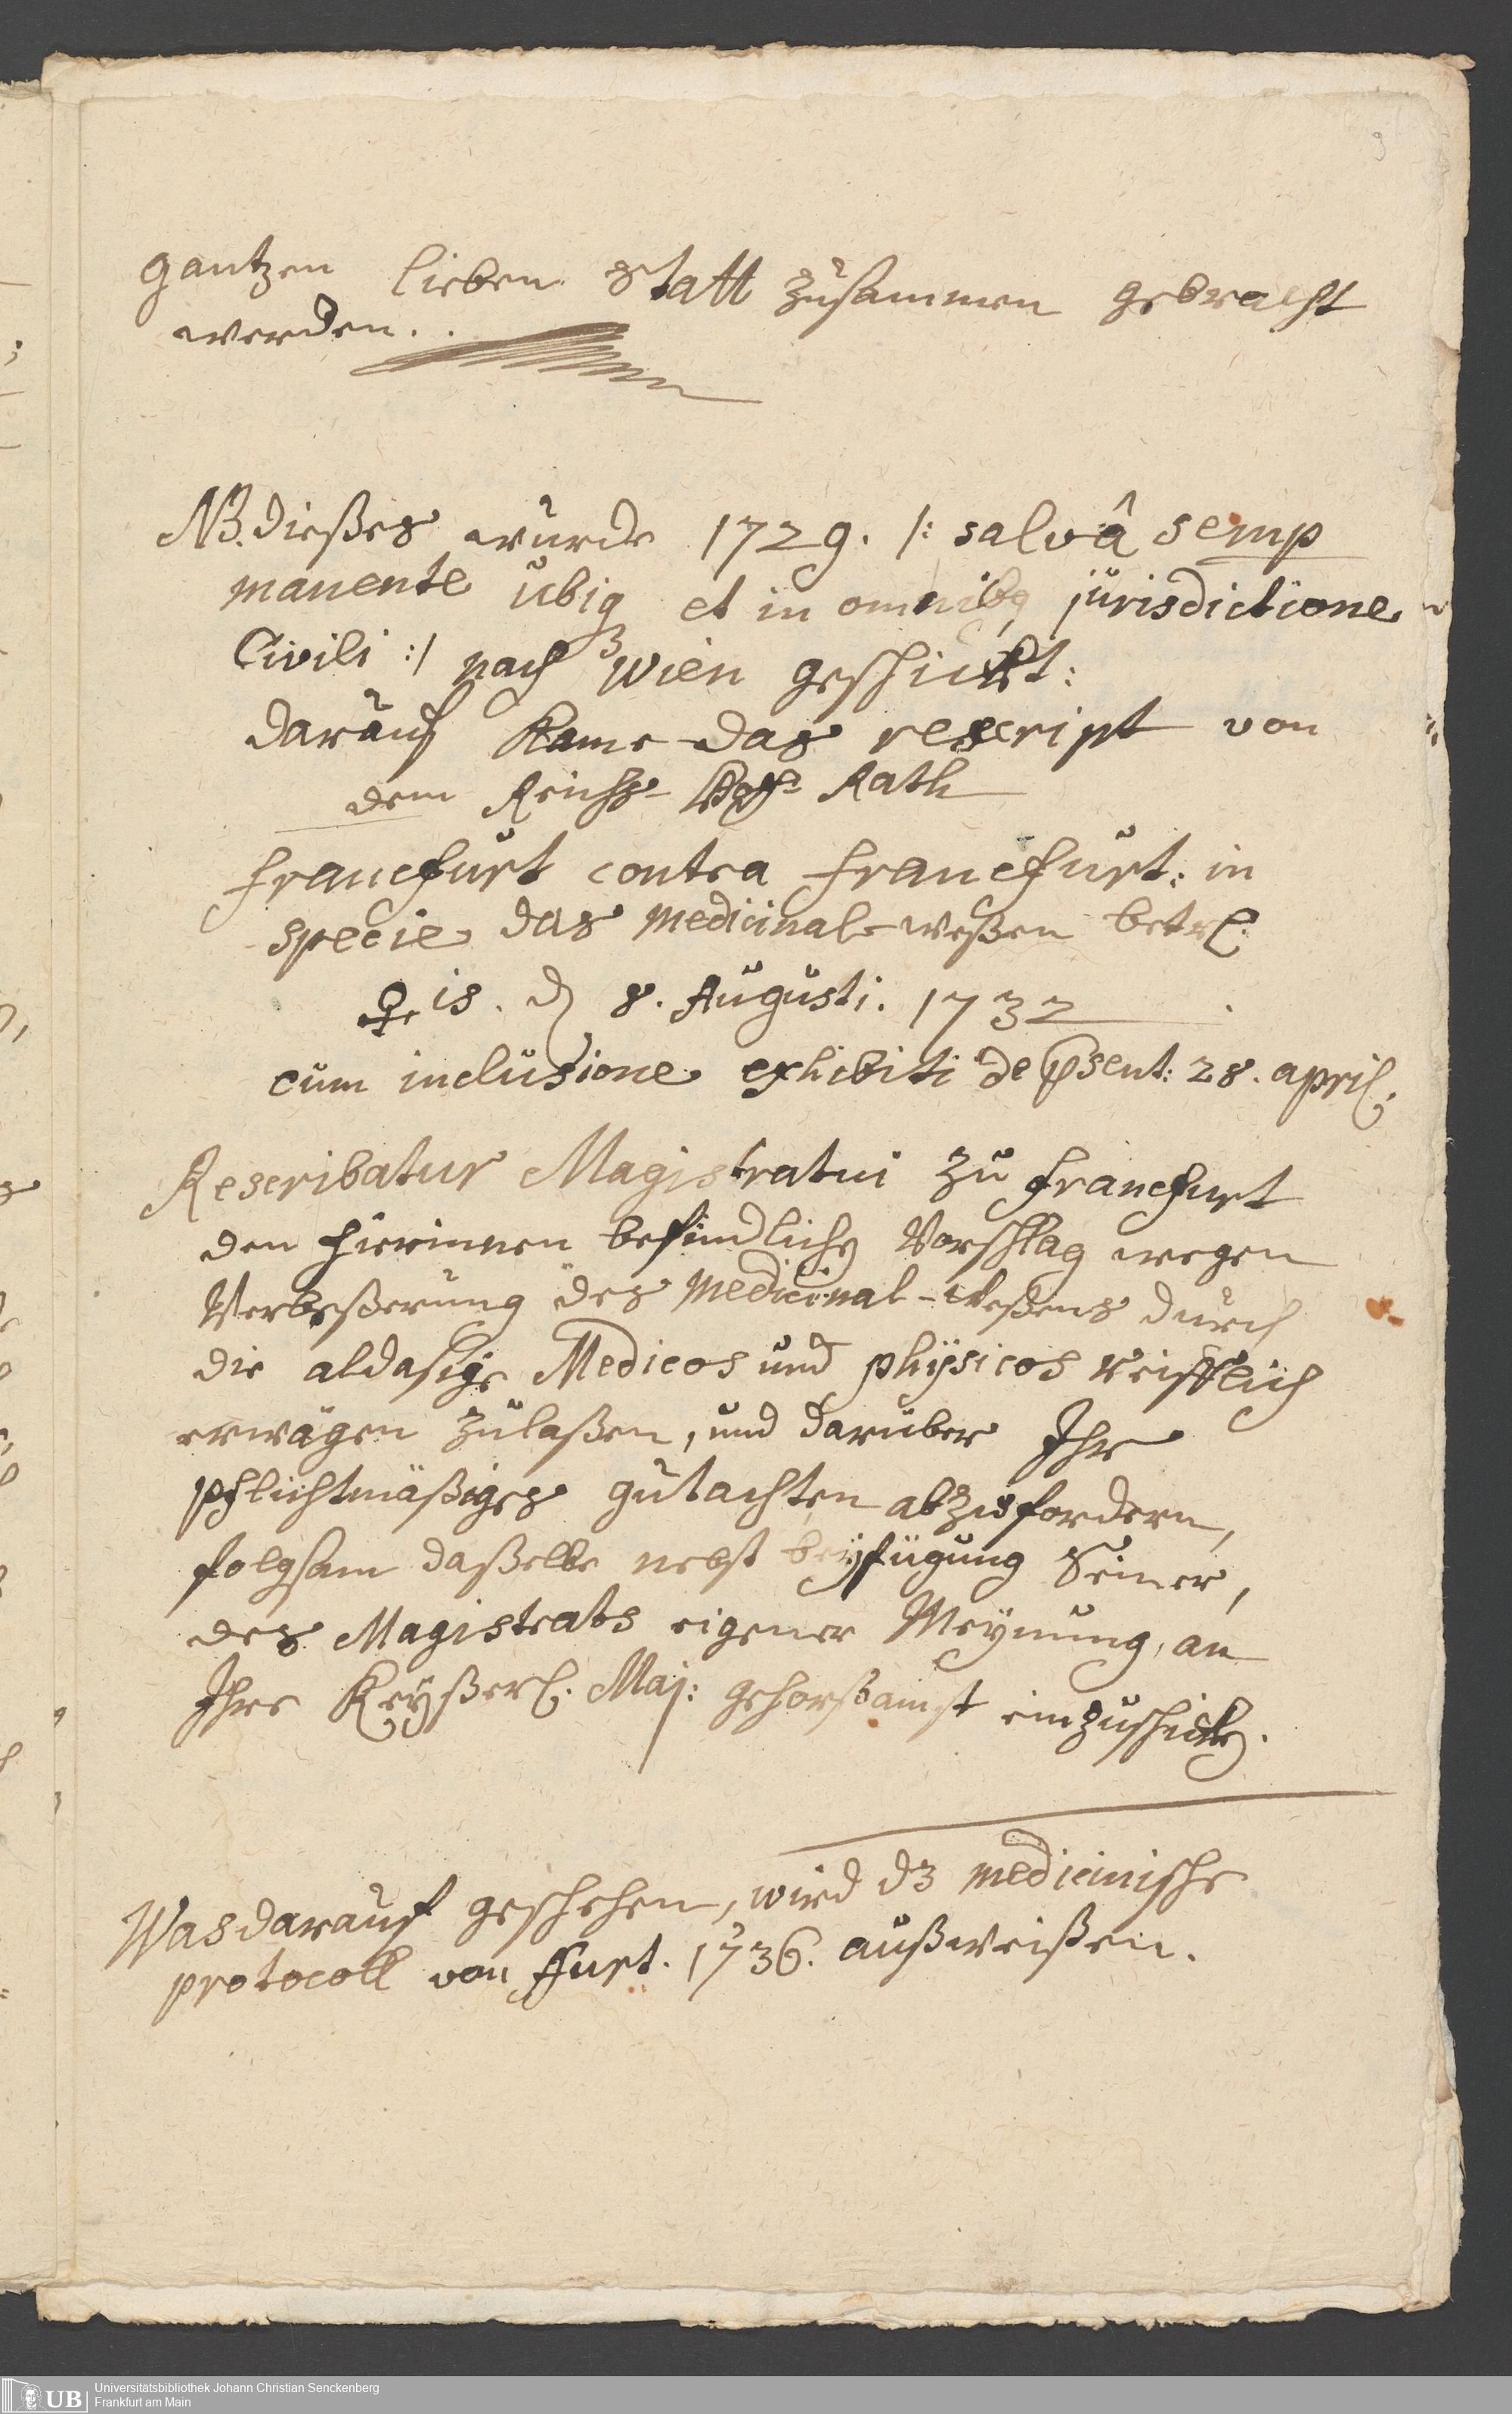 9
gantzen lieben Statt zusammen gebracht
werden..
NB. dießes wurde 1729. /: salvâ semp
manente ubiq3 et in omnibq jurisdictione
Civili :/ nach Wien geschickt:
darauf kame das rescript von
dem Reichs- Hoff Rath
Franckfurt contra Franckfurt: in
specie das medicinal-weßen betr.
♀is. d 8. Augusti. 1732
cum inclusione exhibiti de psent: 28. april.
Rescribatur Magistratui zu Franckfurt
den hierinnen befindlichen Vorschlag wegen
Verbeßerung des medicinal-weßens durch
die aldasige Medicos und physicos reifflich
erwägen zulaßen, und darüber Ihr
pflichtmäßiges gutachten abzufordern,
folgsam daßelbe nebst beyfügung Seiner,
des Magistrats eigener Meynung, an
Ihre Keyßerl. Maj: gehorßamst einzuschicken.
Was darauf geschehen, wird dz medicinische
protocoll von ffurt. 1736. außweißen.
UB
Universitätsbibliothek Johann Christian Senckenberg
Frankfurt am Main